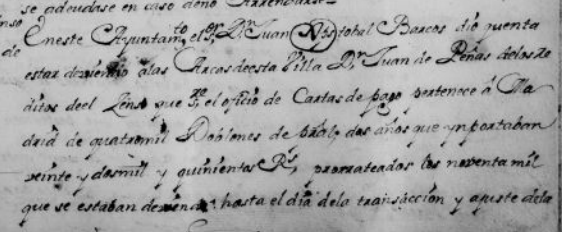 se adeudase en caso de no Arrendarse
En este Ayuntamto el Sr Dn Juan Xpstobal Barcos dio quenta
de estar deviendo a las Arcas de esta Villa Dn Juan de Peñas de los Re
ditos de el Zenso que Sre el oficio de Cartas de pago pertenece à Ma
drid de quatro mil Doblones de pral, dos años que ynportaban
veinte y dos mil y quinientos Rs, prorrateados los noventa mil
que se estaban deviendo hasta el dia de la transaccion y ajuste de la